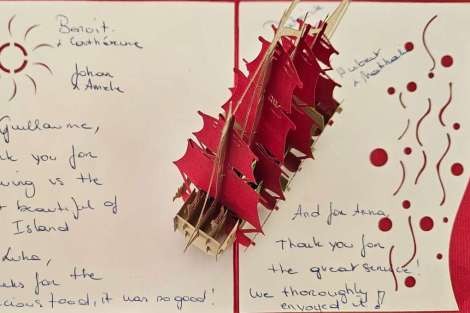 Benoit
& Catherine
Johan
& Amelie
Guillaume,
you for
is the
beautiful of
Island
Luka,
for the
food, it was so good!
Hubert
&
And for Anna,
Thank you for
the great service!
We thoroughly
enjoyed it!